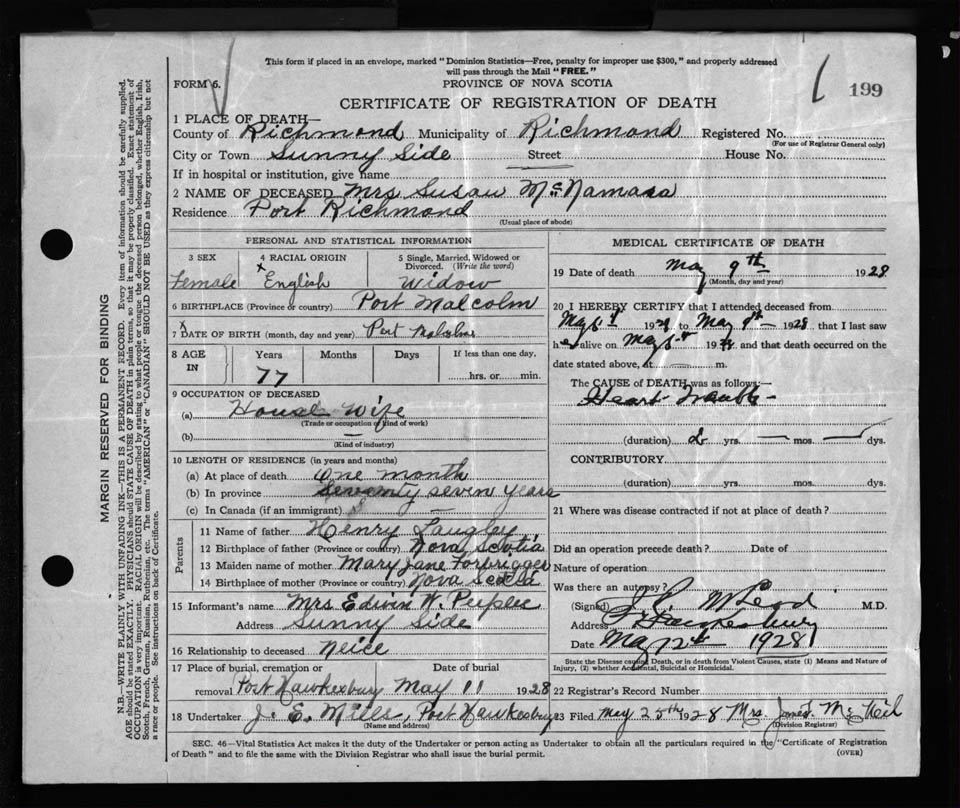 This form if placed in an envelope, marked "Dominion Statistics—Free, penalty for improper use $300," and properly addressed
will pass through the Mail "FREE."
FORM 6.
PROVINCE OF NOVA SCOTIA
199
CERTIFICATE OF REGISTRATION OF DEATH
1 PLACE OF DEATH—
County of Richmond Municipality of Richmond Registered No.
(For use of Registrar General only)
City or Town Sunny Side Street House No.
If in hospital or institution, give name
2 NAME OF DECEASED Mrs Susan McNamara
Residence Port Richmond
(Usual place of abode)
PERSONAL AND STATISTICAL INFORMATION
3 SEX 4 RACIAL ORIGIN 5 Single, Married, Widowed or
Divorced. (Write the word)
Female English Widow
6 BIRTHPLACE (Province or country) Port Malcolm
7 DATE OF BIRTH (month, day and year) Port Malcolm
8 AGE Years Months Days If less than one day,
IN 77 hrs. or min.
9 OCCUPATION OF DECEASED
(a) House Wife
(Trade or occupation or kind of work)
(b) —
(Kind of industry)
10 LENGTH OF RESIDENCE (in years and months)
(a) At place of death One month
(b) In province Seventy seven years
(c) In Canada (if an immigrant)
Parents
11 Name of father Henry Langley
12 Birthplace of father (Province or country) Nova Scotia
13 Maiden name of mother Mary Jane
14 Birthplace of mother (Province or country) Nova Scotia
15 Informant's name Mrs Edwin W.
Address Sunny Side
16 Relationship to deceased Neice
17 Place of burial, cremation or Date of burial
removal Port Hawkesbury May 11 1928
18 Undertaker J. E. Mills, Port Hawkesbury
(Name and address)
MEDICAL CERTIFICATE OF DEATH
19 Date of death May 9th 1928
(Month, day and year)
20 I HEREBY CERTIFY that I attended deceased from
May 192 to May 9th 1928 that I last saw
her alive on May 192 and that death occurred on the
date stated above, at — m.
The CAUSE of DEATH was as follows:—
Heart Trouble -
(duration) 2 yrs. — mos. — dys.
CONTRIBUTORY
(duration) yrs. mos. dys.
21 Where was disease contracted if not at place of death?
Did an operation precede death? Date of
Nature of operation
Was there an autopsy?
(Signed) McLeod M.D.
Address Hawkesbury
Date May 12th 1928
State the Disease causing Death, or in death from Violent Causes, state (1) Means and Nature of
Injury, (2) whether Accidental, Suicidal or Homicidal.
22 Registrar's Record Number
23 Filed May 25th 1928 Mrs James T. McNeil
(Division Registrar)
SEC. 46—Vital Statistics Act makes it the duty of the Undertaker or person acting as Undertaker to obtain all the particulars required in the "Certificate of Registration
of Death" and to file the same with the Division Registrar who shall issue the burial permit.
(OVER)
MARGIN RESERVED FOR BINDING
N.B.—WRITE PLAINLY WITH UNFADING INK—THIS IS A PERMANENT RECORD. Every item of information should be carefully supplied.
AGE should be stated EXACTLY. PHYSICIANS should STATE CAUSE OF DEATH in plain terms, so that it may be properly classified. Exact statement of
OCCUPATION is very important. RACIAL ORIGIN will be described by stating to what people or tongue the deceased person belonged, whether English, Irish,
Scotch, French, German, Russian, Ruthenian, etc. The terms "AMERICAN" or "CANADIAN" SHOULD NOT BE USED as they express citizenship but not
a race or people. See instructions on back of Certificate.